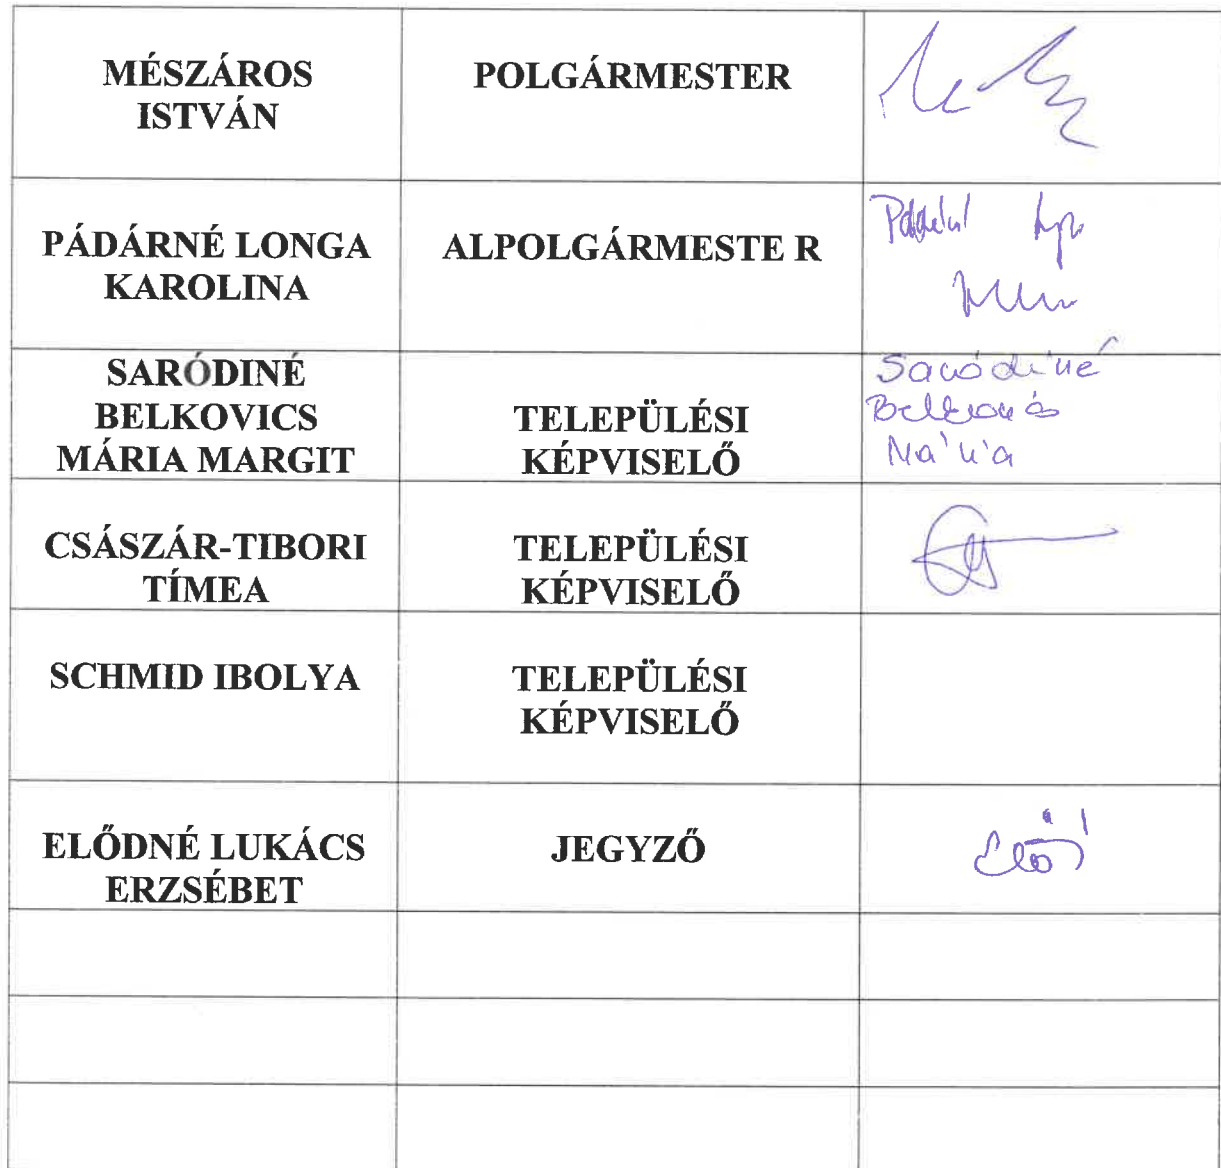 MÉSZÁROS
ISTVÁN
POLGÁRMESTER
PÁDÁRNÉ LONGA
KAROLINA
ALPOLGÁRMESTE R
SARÓDINÉ
BELKOVICS
MÁRIA MARGIT
TELEPÜLÉSI
KÉPVISELŐ
Saródiné
Belkovics
Mária
CSÁSZÁR-TIBORI
TÍMEA
TELEPÜLÉSI
KÉPVISELŐ
SCHMID IBOLYA
TELEPÜLÉSI
KÉPVISELŐ
ELŐDNÉ LUKÁCS
ERZSÉBET
JEGYZŐ